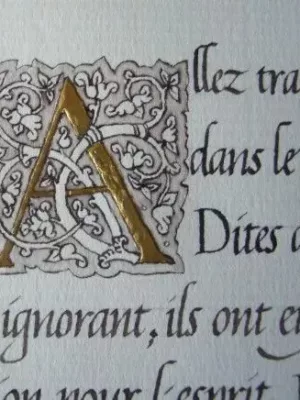 Allez tra
dans le
Dites
ignorant, ils ont e
ion pour l'esprit